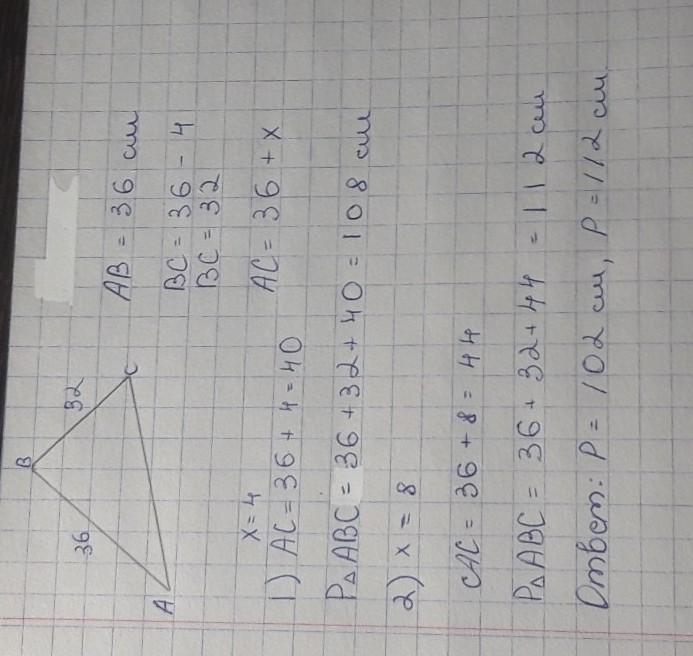 B
36
32
A
C
AB = 36 см
BC = 36 - 4
BC = 32
AC = 36 + x
x = 4
1) AC = 36 + 4 = 40
P△ABC = 36 + 32 + 40 = 108 см
2) x = 8
AC = 36 + 8 = 44
P△ABC = 36 + 32 + 44 = 112 см
Ответ: P = 102 см, P = 112 см